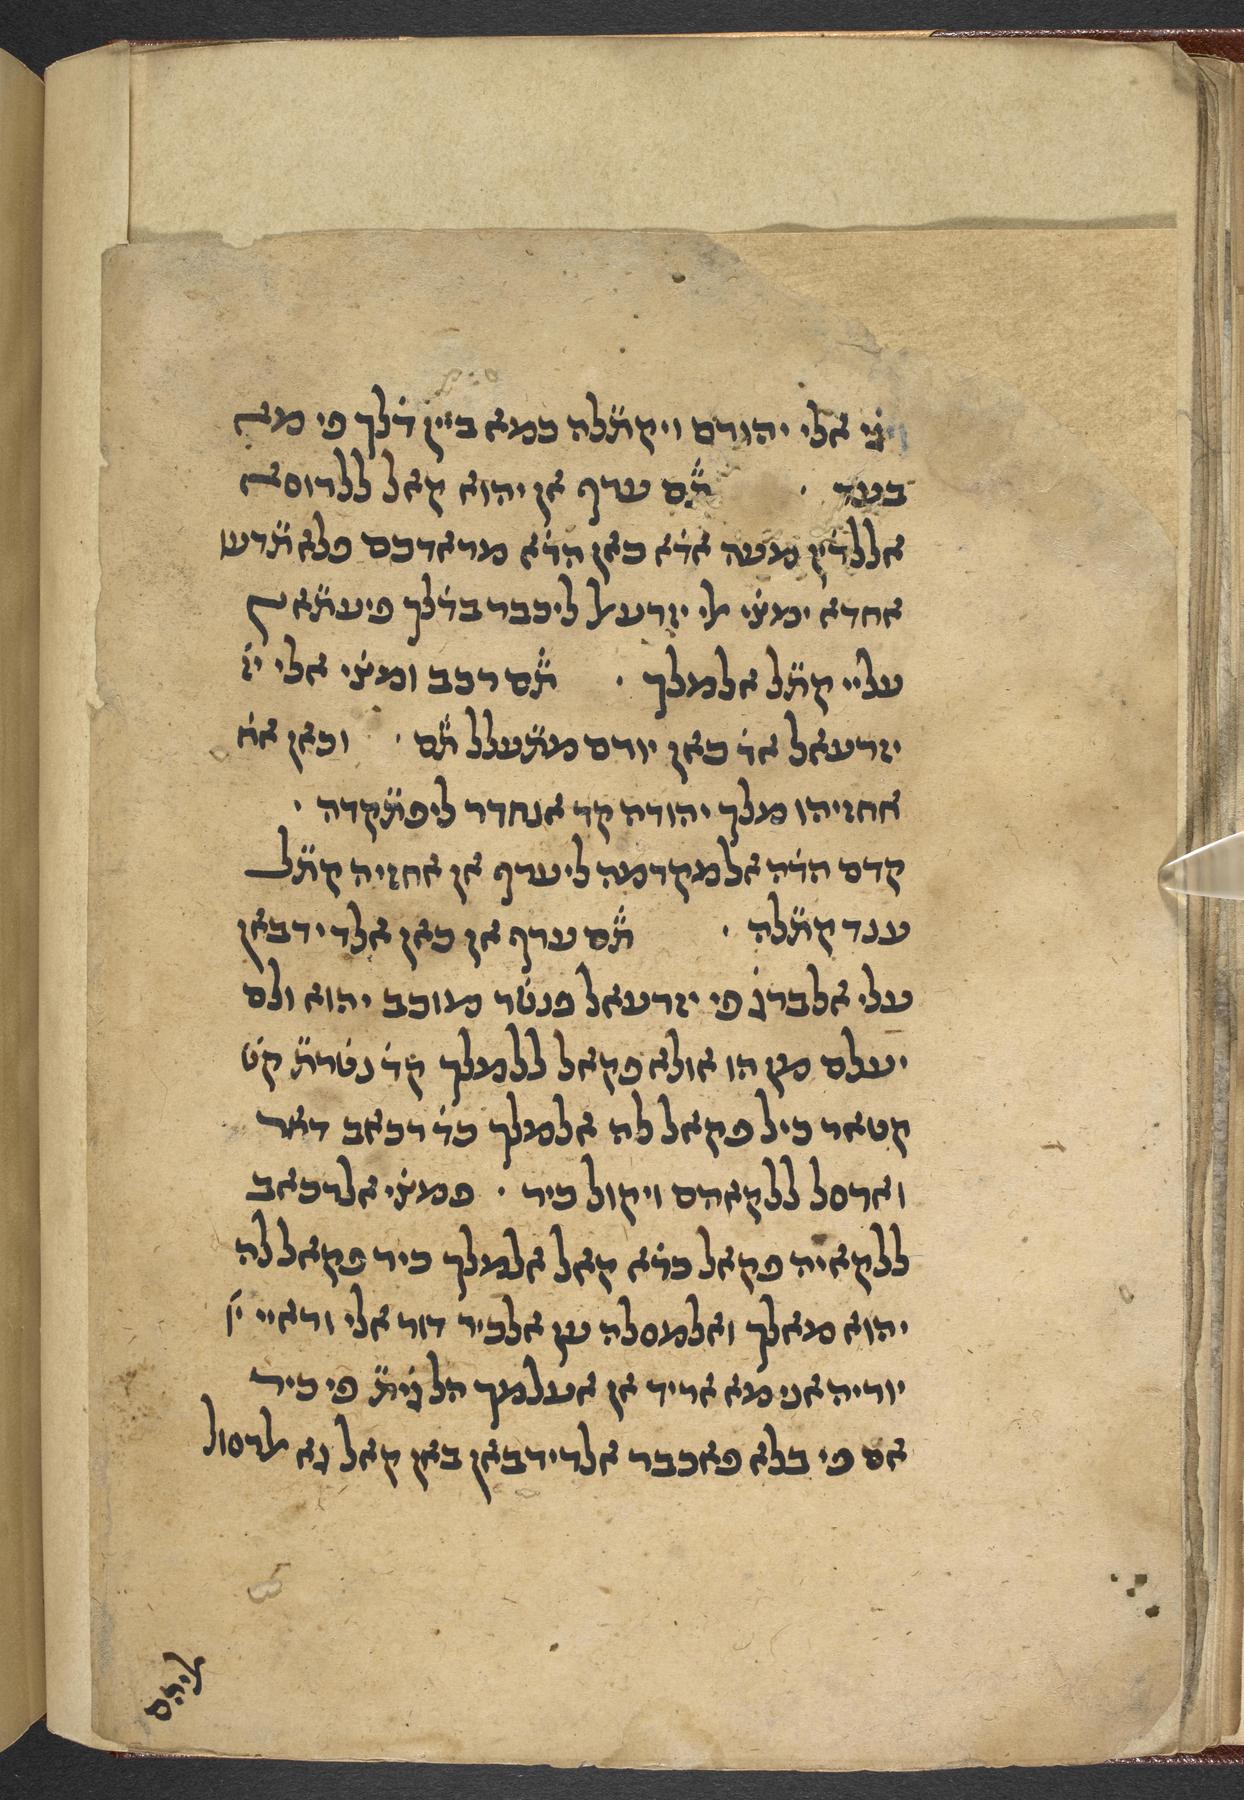 אלי יהורם ויקתׄלה כמא ביין דׄלך פי מא
בעד · תׄם ערף אן יהוא קאל ללרוסא
אללדׄין מעה אדׄא כאן הדׄא מראדכם פלא תׄדעו
אחדא ימצׄי אלי יזרעאל ליכבר בדׄלך פיעתׄאץ
עליי קתׄל אלמלך · תׄם רכב ומצׄי אלי יז
יזרעאל אדׄ כאן יורם מתׄעלל תׄם · וכאן אח
אחזיהו מלך יהודה קד אנחדר ליפתׄקדה ·
קדם הדׄה אלמקדמה ליערף אן אחזיה קתׄל
ענד קתׄלה · תׄם ערף אן כאן אלדידבאן
עלי אלברגׄ פי יזרעאל פנטׄר מוכב יהוא ולם
יעלם מן הו אולא פקאל ללמלך קדׄ נטׄרתׄ קט
קטאר כיל פקאל לה אלמלך כדׄ רכאב דאר
וארסל ללקאהם ויקול כיר · פמצׄי אלרכאב
ללקאיה פקאל כדׄא קאל אלמלך כיר פקאל לה
יהוא מאלך ואלמסלה ען אלכיר דור אלי וראיי יו
יוריה אני מא אריד אן אעלמך הל גׄיתׄ פי כיר
אם פי בלא פאכבר אלדידבאן באן קאל גא אלרסול
אליהם